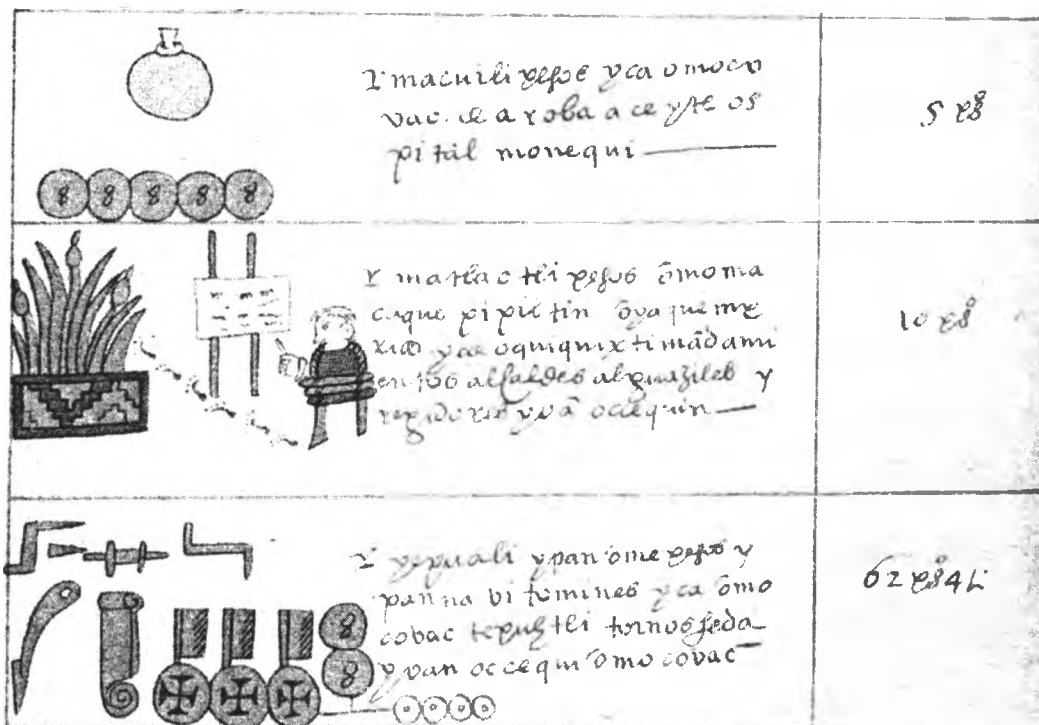 Y macuili pesos yca omoco
vac ce aroba aceyte os
pital monequi
5 ps
8 8 8 8 8
Y matlactli pesos ōmoma
caque pipiltin ōyaque me
xico yca oquiquixti mādami
entos alcaldes alguaziles y
regidores yvā occequin
10 ps
Y yepuali ypan ome pesos y
pan navi tomines yca omo
covac tepuztli tornos seda
yvan occequi omocovac
62 ps 4 t
8
8